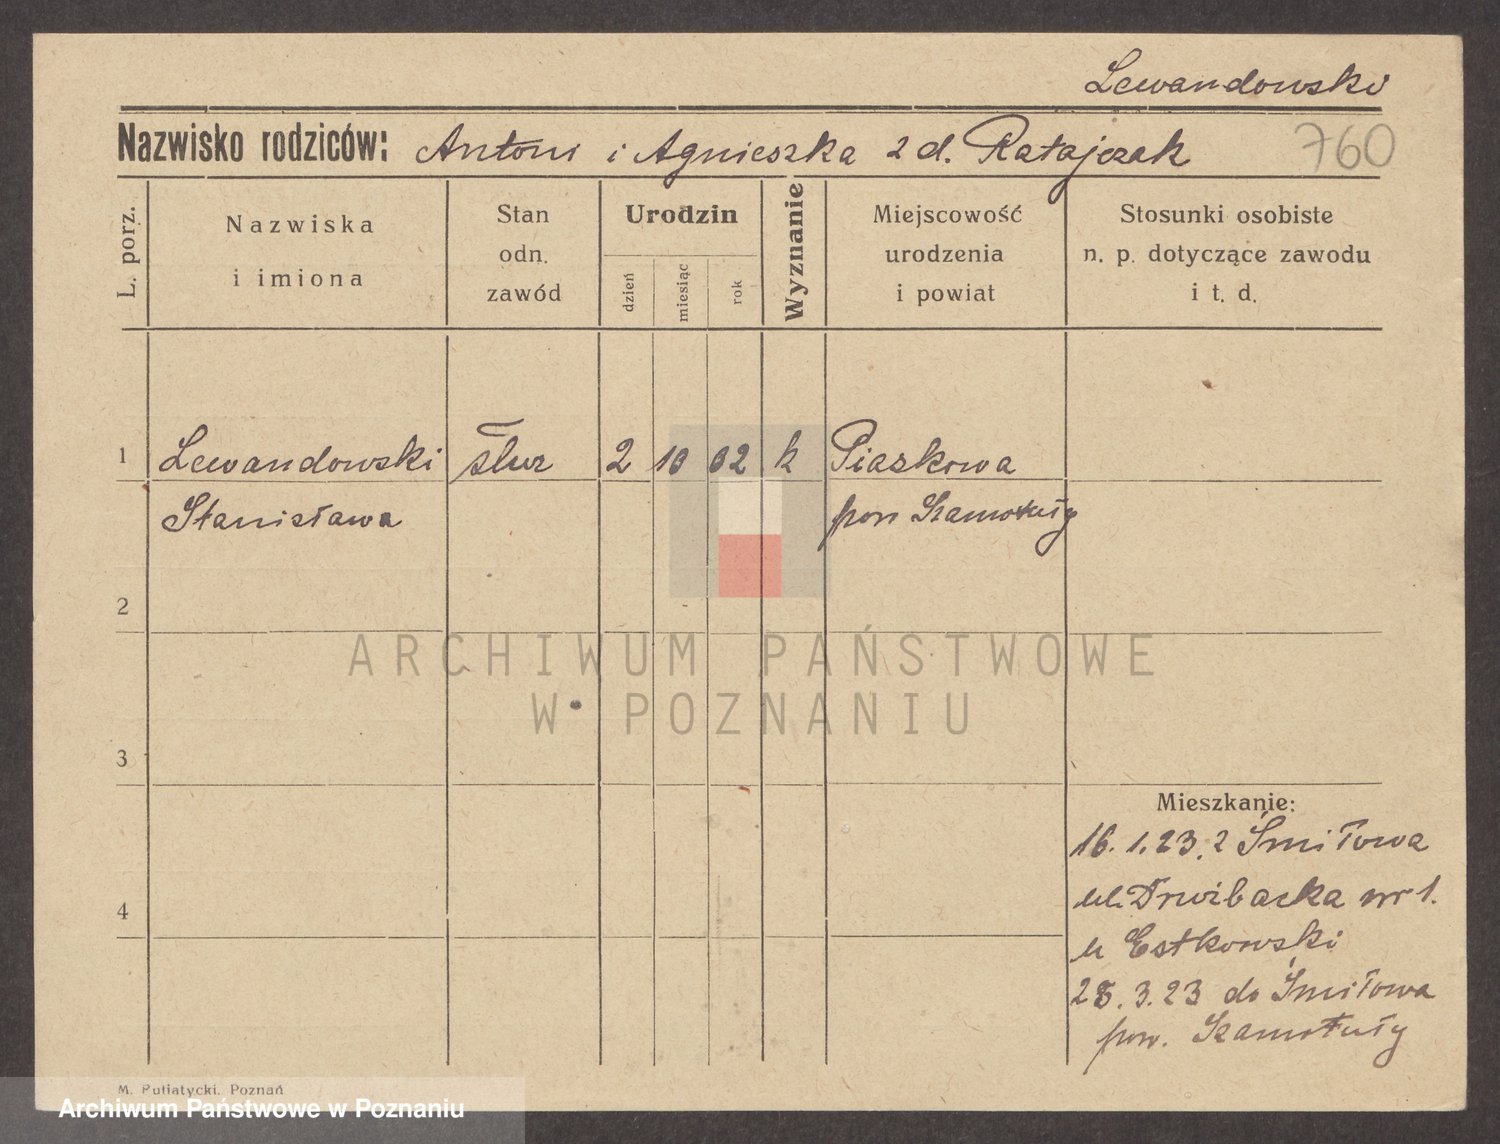 Lewandowski
Nazwisko rodziców: Antoni i Agnieszka z d. Ratajczak 760
L. porz.
Nazwiska
i imiona
Stan
odn.
zawód
Urodzin
dzień
miesiąc
rok
Wyznanie
Miejscowość
urodzenia
i powiat
Stosunki osobiste
n. p. dotyczące zawodu
i t. d.
1 Lewandowski 2 10 02 k Piaskowa
Stanisława pow Szamotuły
2
3
4
Mieszkanie:
16. 1. 23. z Śmiłowa
ul. nr 1.
u Estkowski
28. 3. 23 do Śmiłowa
pow. Szamotuły
M. Putiatycki, Poznań
ARCHIWUM PAŃSTWOWE
W POZNANIU
Archiwum Państwowe w Poznaniu